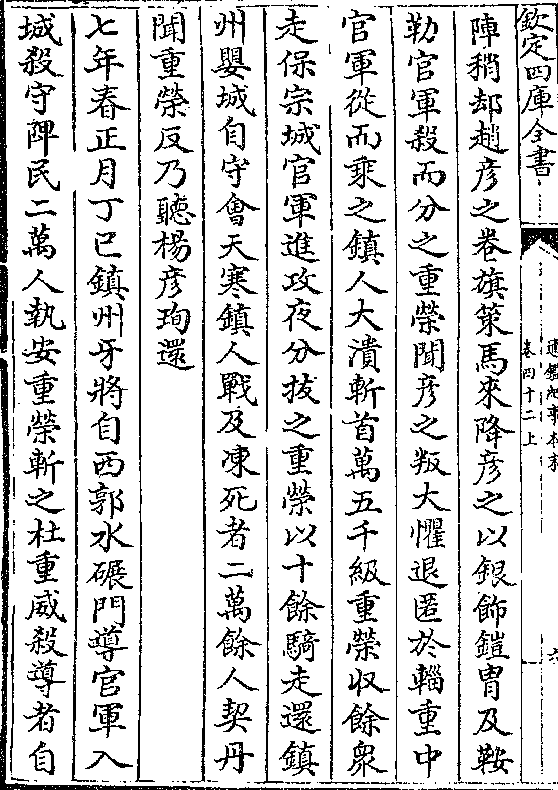 欽定四庫全書
通鑑紀事本末
卷四十二上
六
陣稍却趙彦之卷旗策馬來降彦之以銀飾鎧胄及鞍
勒官軍殺而分之重榮聞彦之叛大懼退匿於輜重中
官軍從而乘之鎮人大潰斬首萬五千級重榮收餘衆
走保宗城官軍進攻夜分拔之重榮以十餘騎走還鎮
州嬰城自守會天寒鎮人戰及凍死者二萬餘人契丹
聞重榮反乃聽楊彦珣還
七年春正月丁巳鎮州牙將自西郭水碾門導官軍入
城殺守陴民二萬人執安重榮斬之杜重威殺導者自